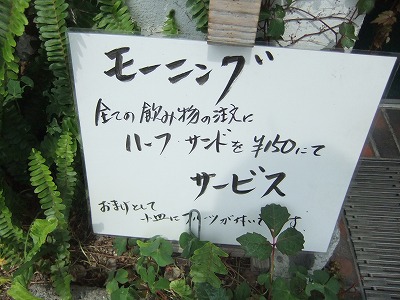 モーニング
全ての飲み物の注文に
ハーフ・サンドを¥150にて
サービス
おまけとして
小皿にフルーツが付いてます